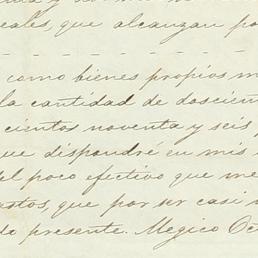 eales, que alcanzan po
como bienes propios m
la cantidad de doscien
cientos noventa y seis
ue dispondré en mis
del poco efectivo que me
astos, que por ser casi
do presente. Megico Oc